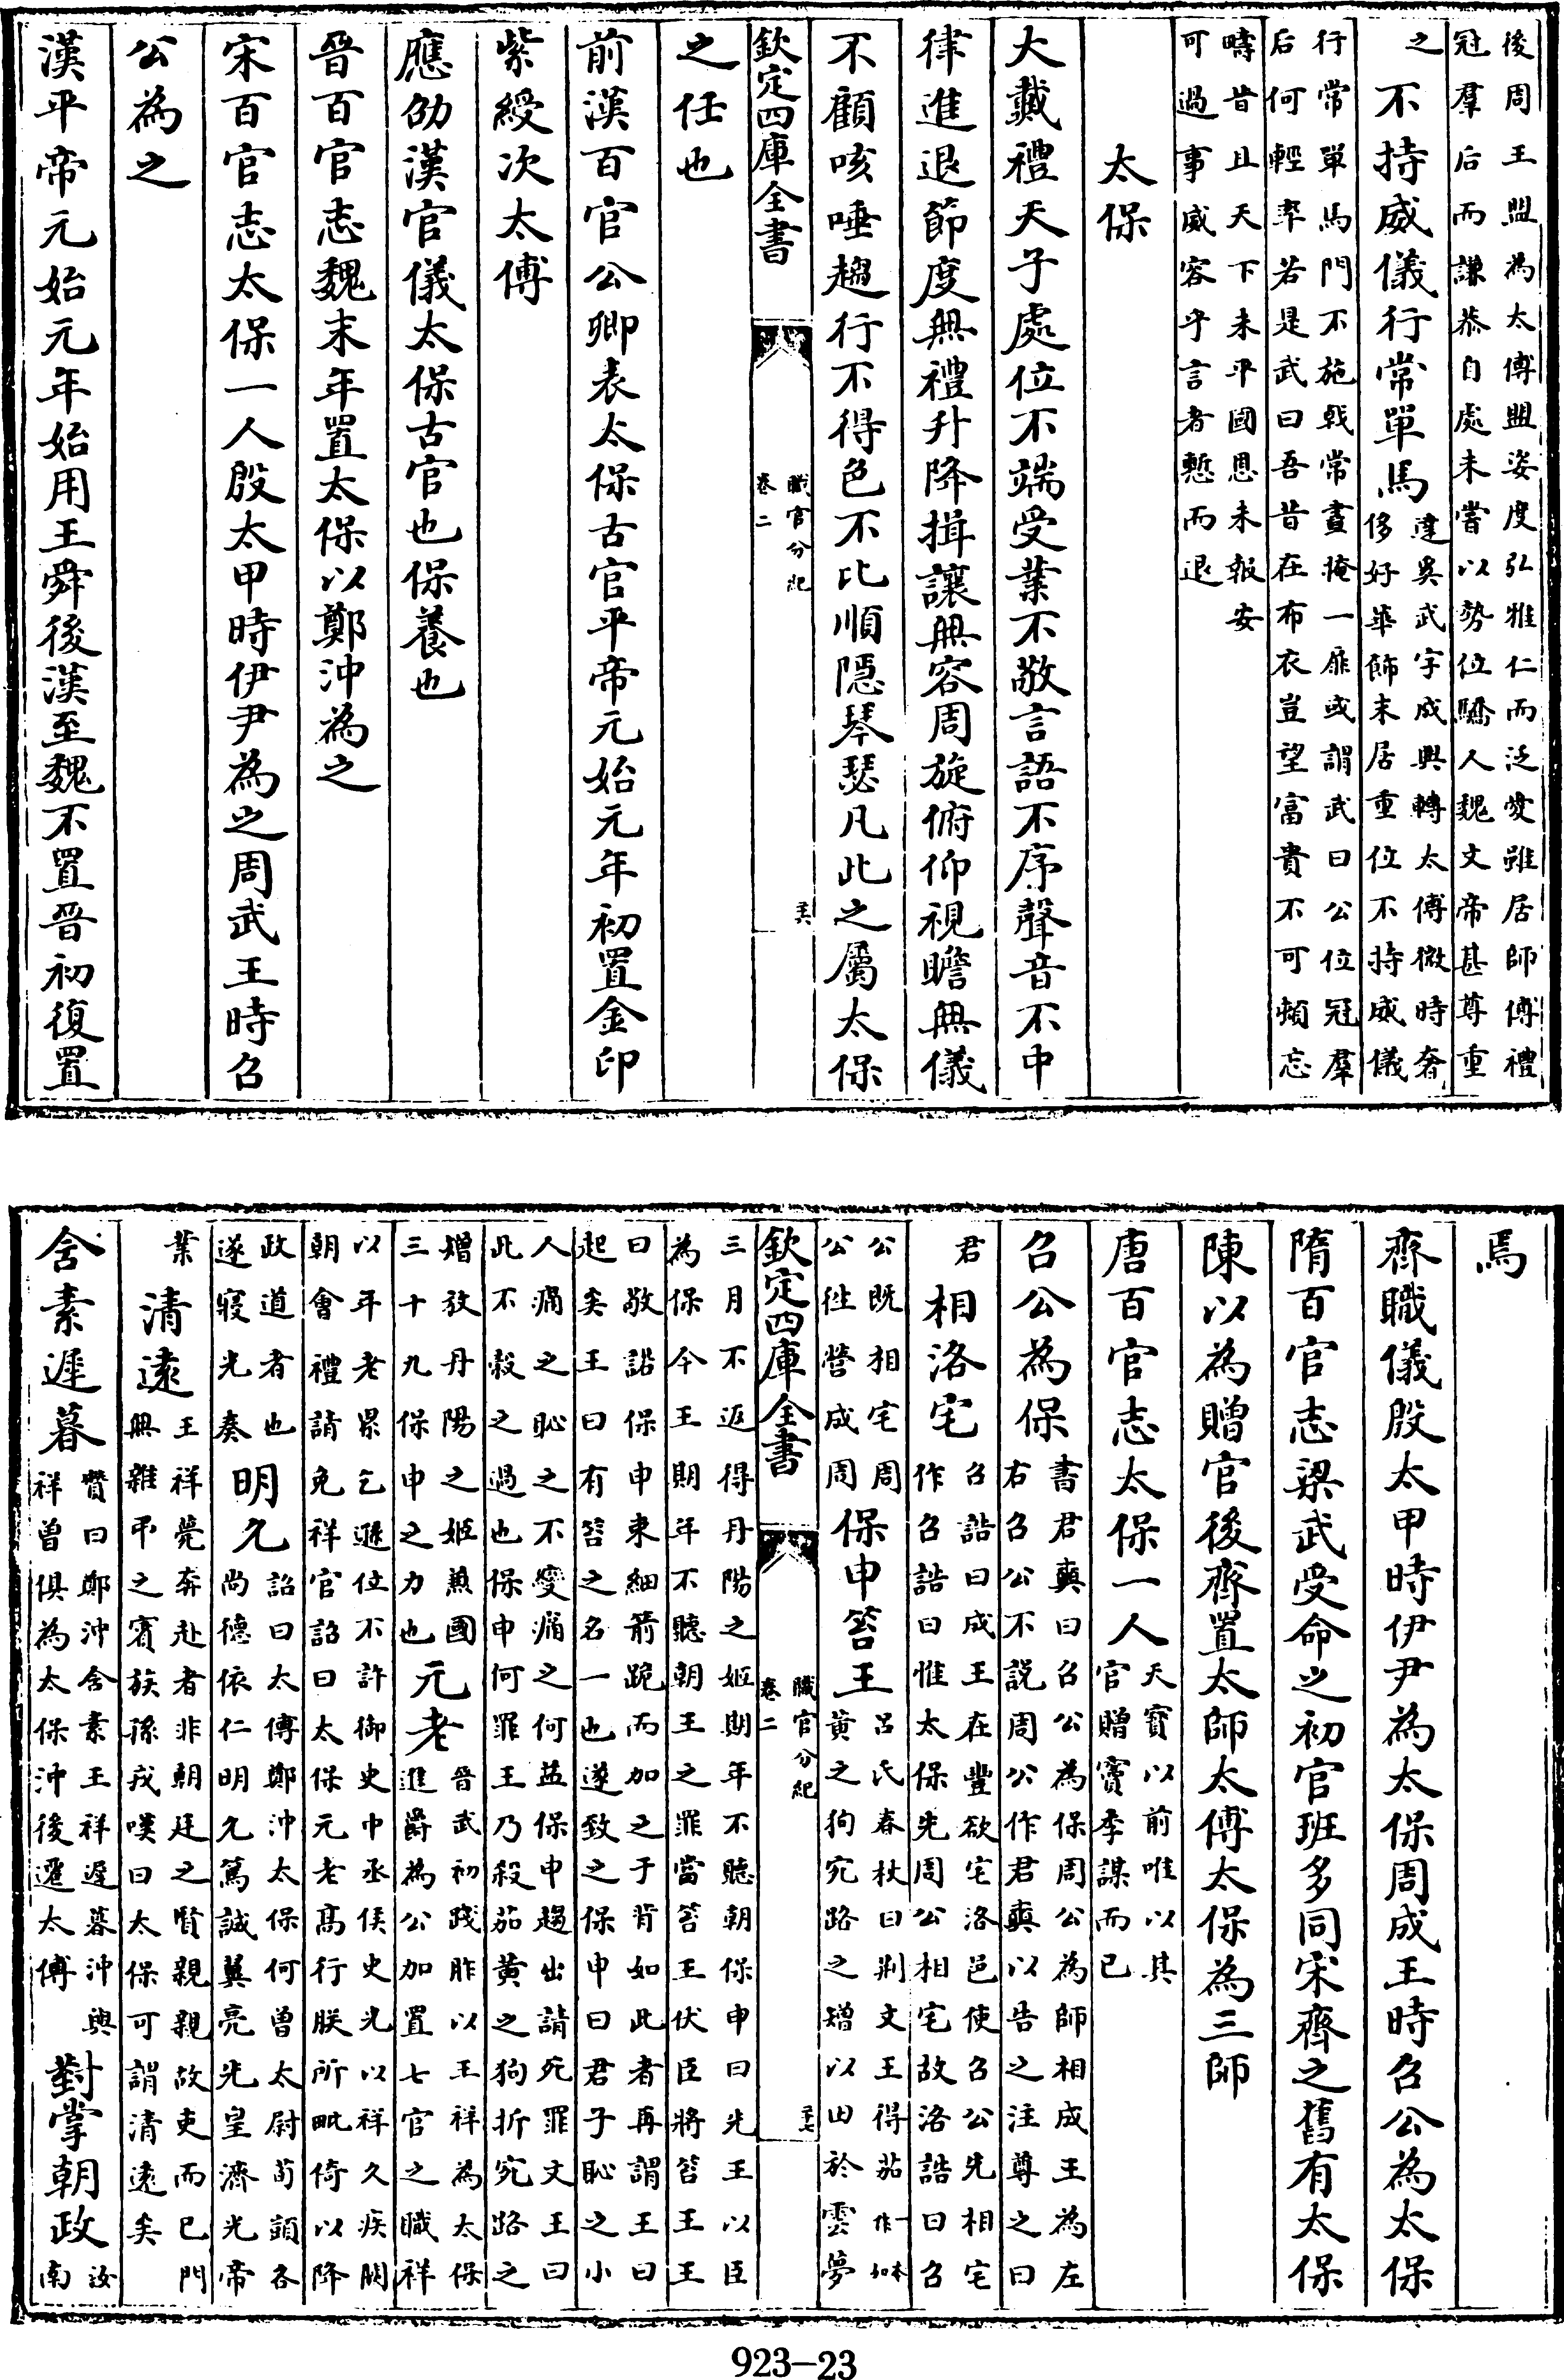 後周王盟為太傅盟姿度弘雅仁而泛愛雖居師傅禮
冠羣后而謙恭自處未嘗以勢位驕人魏文帝甚尊重
之
不持威儀行常單馬
達奚武字成興轉太傅微時奢
侈好華飾末居重位不持威儀
行常單馬門不施戟常晝掩一扉或謂武曰公位冠羣
后何輕率若是武曰吾昔在布衣豈望富貴不可頓忘
疇昔且天下未平國恩未報安
可過事威容乎言者慙而退
太保
大戴禮天子處位不端受業不敬言語不序聲音不中
律進退節度無禮升降揖讓無容周旋俯仰視瞻無儀
不顧咳唾趨行不得色不比順隱琴瑟凡此之屬太保
欽定四庫全書
職官分紀
卷二
之任也
前漢百官公卿表太保古官平帝元始元年初置金印
紫綬次太傅
應劭漢官儀太保古官也保養也
晉百官志魏末年置太保以鄭沖為之
宋百官志太保一人殷太甲時伊尹為之周武王時召
公為之
漢平帝元始元年始用王舜後漢至魏不置晉初復置
焉
齊職儀殷太甲時伊尹為太保周成王時召公為太保
隋百官志梁武受命之初官班多同宋齊之舊有太保
陳以為贈官後齊置太師太傅太保為三師
唐百官志太保一人
天寶以前唯以其
官贈竇季謀而已
召公為保
書君奭曰召公為保周公為師相成王為左
右召公不説周公作君奭以告之注尊之曰
君
相洛宅
召誥曰成王在豐欲宅洛邑使召公先相宅
作召誥曰惟太保先周公相宅故洛誥曰召
公既相宅周
公徃營成周
保申笞王
呂氏春秋曰荆文王得茹一本作如
黄之狗宛路之矰以田於雲夢
欽定四庫全書
職官分紀
卷二
三月不返得丹陽之姬期年不聽朝保申曰先王以臣
為保今王期年不聽朝王之罪當笞王伏臣將笞王王
曰敬諾保申束細箭跪而加之于背如此者再謂王曰
起矣王曰有笞之名一也遂致之保申曰君子恥之小
人痛之恥之不變痛之何益保申趨出請死罪文王曰
此不穀之過也保申何罪王乃殺茹黄之狗折宛路之
矰放丹陽之姬兼國
三十九保申之力也
元老
晉武初踐阼以王祥為太保
進爵為公加置七官之職祥
以年老累乞遜位不許御史中丞侯史光以祥久疾闕
朝會禮請免祥官詔曰太保元老高行朕所毗倚以隆
政道者也
遂寢光奏
明允
詔曰太傅鄭沖太保何曾太尉荀顗各
尚德依仁明允篤誠翼亮先皇濟光帝
業
清遠
王祥薨奔赴者非朝廷之賢親親故吏而已門
無雜弔之賓族孫戎嘆曰太保可謂清遠矣
含素遲暮
贊曰鄭沖含素王祥遲暮沖與
祥曾俱為太保沖後遷太傅
對掌朝政
汝
南
923-23